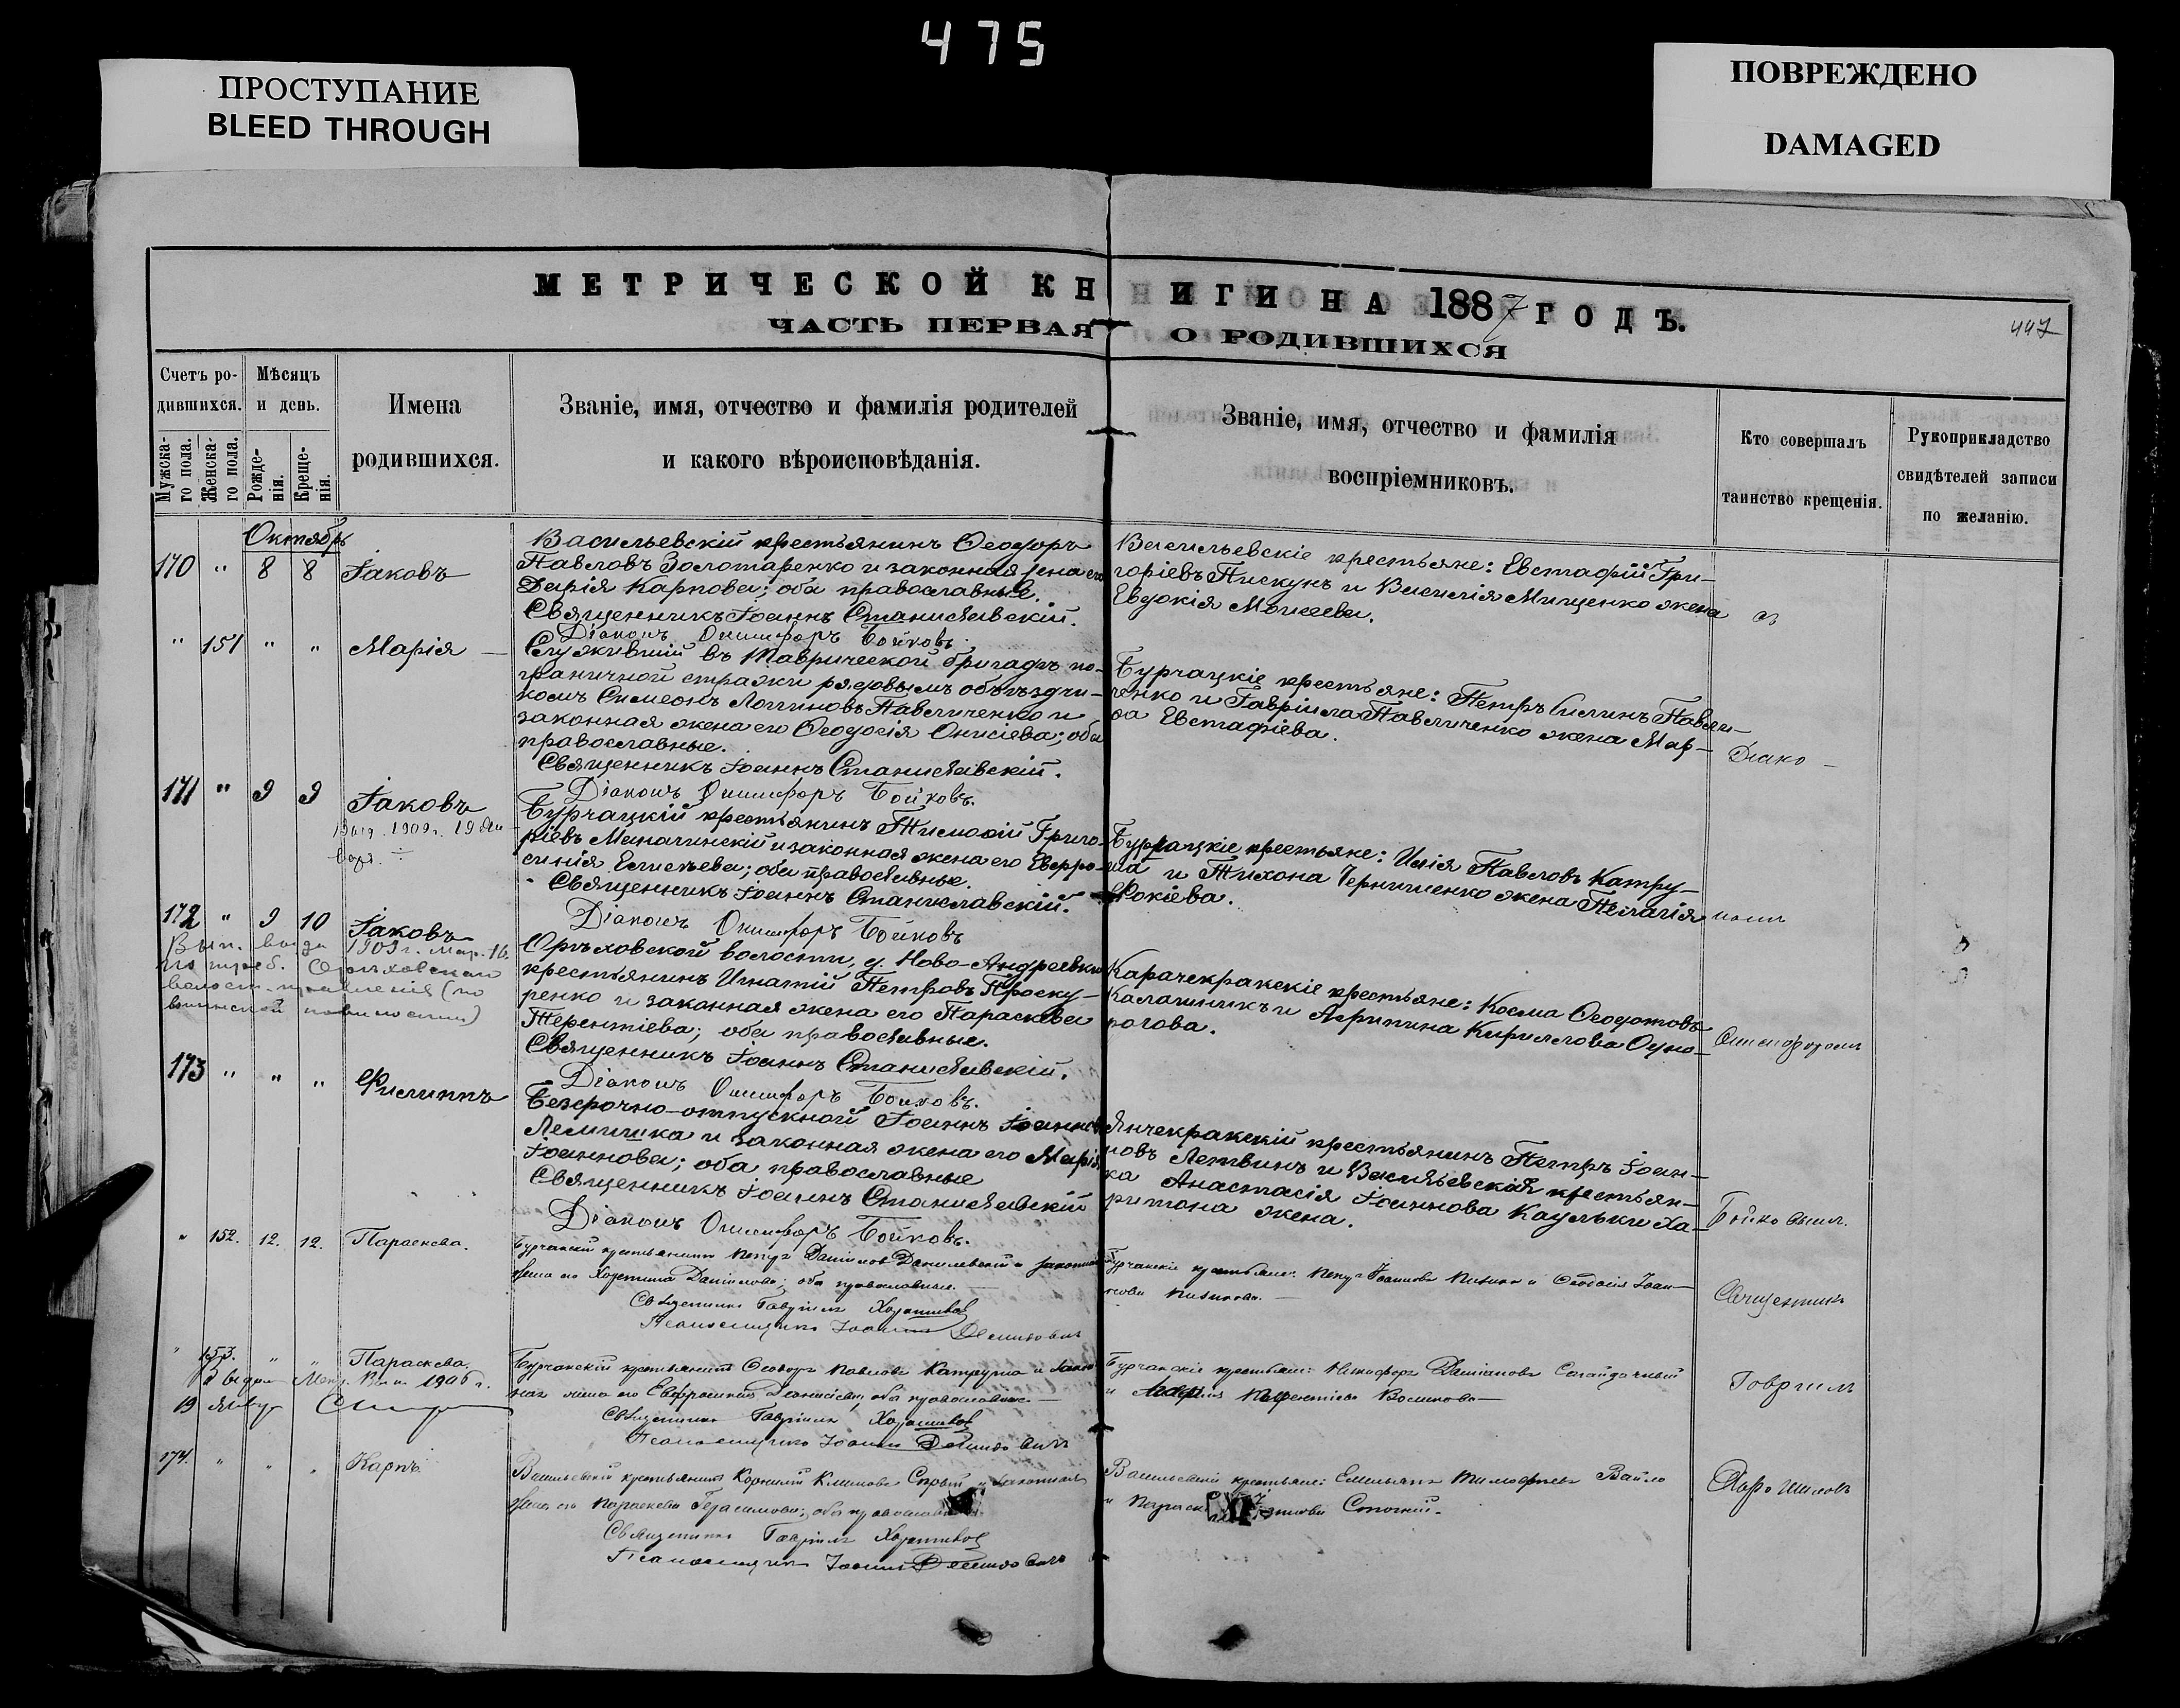 475
ПРОСТУПАНИЕ
BLEED THROUGH
ПОВРЕЖДЕНО
DAMAGED
МЕТРИЧЕСКОЙ КНИГИ НА 1887 ГОДЪ.
447
ЧАСТЬ ПЕРВАЯ О РОДИВШИХСЯ
Счетъ ро-
дившихся.
Мужска-
го пола.
Женска-
го пола.
Мѣсяцъ
и день.
Рожде-
нія.
Креще-
нія.
Имена
родившихся.
Званіе, имя, отчество и фамилія родителей
и какого вѣроисповѣданія.
Званіе, имя, отчество и фамилія
воспріемниковъ.
Кто совершалъ
таинство крещенія.
Рукоприкладство
свидѣтелей записи
по желанію.
Октябрь
170 " 8 8 Іаковъ
Васильевскій крестьянинъ Ѳеодоръ
Павловъ Золотаренко и законная жена его
Дарія Карпова; оба православные.
Священникъ Іоаннъ Станиславскій.
Діаконъ Онисифоръ Бойковъ.
Васильевскіе крестьяне: Евстафій Гри-
горіевъ Пискунъ и Василія Мищенко жена
Евдокія Моисеева.
" 151 " " Марія
Служившій въ Таврической бригадѣ по-
граничной стражи рядовымъ объѣздчи-
комъ Симеонъ Логгиновъ Павличенко и
законная жена его Ѳеодосія Онисіева; оба
православные.
Священникъ Іоаннъ Станиславскій.
Діаконъ Онисифоръ Бойковъ.
Бурчацкіе крестьяне: Петръ Силинъ Павли-
ченко и Гавріила Павличенко жена Мар-
фа Евстафіева.
Діако-
171 " 9 9 Іаковъ
1909 г. 19
Бурчацкій крестьянинъ Тимоѳій Григо-
ріевъ Меначинскій и законная жена его Евфро-
синія Елисѣева; оба православные.
Священникъ Іоаннъ Станиславскій.
Діаконъ Онисифоръ Бойковъ
Бурчацкіе крестьяне: Илія Павловъ Катру-
ша и Тихона Чернышенко жена Пелагія
Фокіева.
номъ
172 " 9 10 Іаковъ
1909 г. Мар. 16.
по треб. Орѣховскаго
волост. правленія (по
воинской повинности)
Орѣховской волости, д. Ново-Андреевки
крестьянинъ Игнатій Петровъ Проску-
ренко и законная жена его Параскева
Терентіева; оба православные.
Священникъ Іоаннъ Станиславскій.
Діаконъ Онисифоръ Бойковъ.
Карачекракскіе крестьяне: Косма Ѳеодотовъ
Калашникъ и Агрипина Кириллова Одно-
рогова.
Онисифоромъ
173 " " " Филиппъ
Безсрочно-отпускной Іоаннъ Іоанновъ
Лемишка и законная жена его Марія
Іоаннова; оба православные
Священникъ Іоаннъ Станиславскій
Діаконъ Онисифоръ Бойковъ.
Янчекракскій крестьянинъ Петръ Іоан-
новъ Летвинъ и Васильевская крестьян-
ка Анастасія Іоаннова Каульки Ха-
ритона жена.
Бойковымъ.
" 152. 12. 12. Параскева.
Бурчанскій крестьянинъ Петръ Даніиловъ Данилевскій и законная
жена его Христина Даніилова; оба православные.
Священникъ Гавріилъ
Псаломщикъ Іоаннъ Демидовичъ
Бурчанскіе крестьяне: Петръ Іоанновъ и Ѳеодосія Іоан-
нова
Священникъ
" 153. " " Параскева.
1906 г.
Бурчанскій крестьянинъ Ѳеодоръ Павловъ Катруша и закон-
ная жена его Евфросинія Діонисіева; оба православные
Священникъ Гавріилъ
Псаломщикъ Іоаннъ Демидовичъ
Бурчанскіе крестьяне: Никифоръ Даміановъ Сагайдачный
Гавріилъ
174. " " " Карпъ.
Васильевскій крестьянинъ Корнилій Климовъ Сѣрый и законная
жена его Параскева Герасимова; оба православные.
Священникъ Гавріилъ
Псаломщикъ Іоаннъ Демидовичъ
Васильевскіе крестьяне: Емельянъ Тимофеевъ Вайло